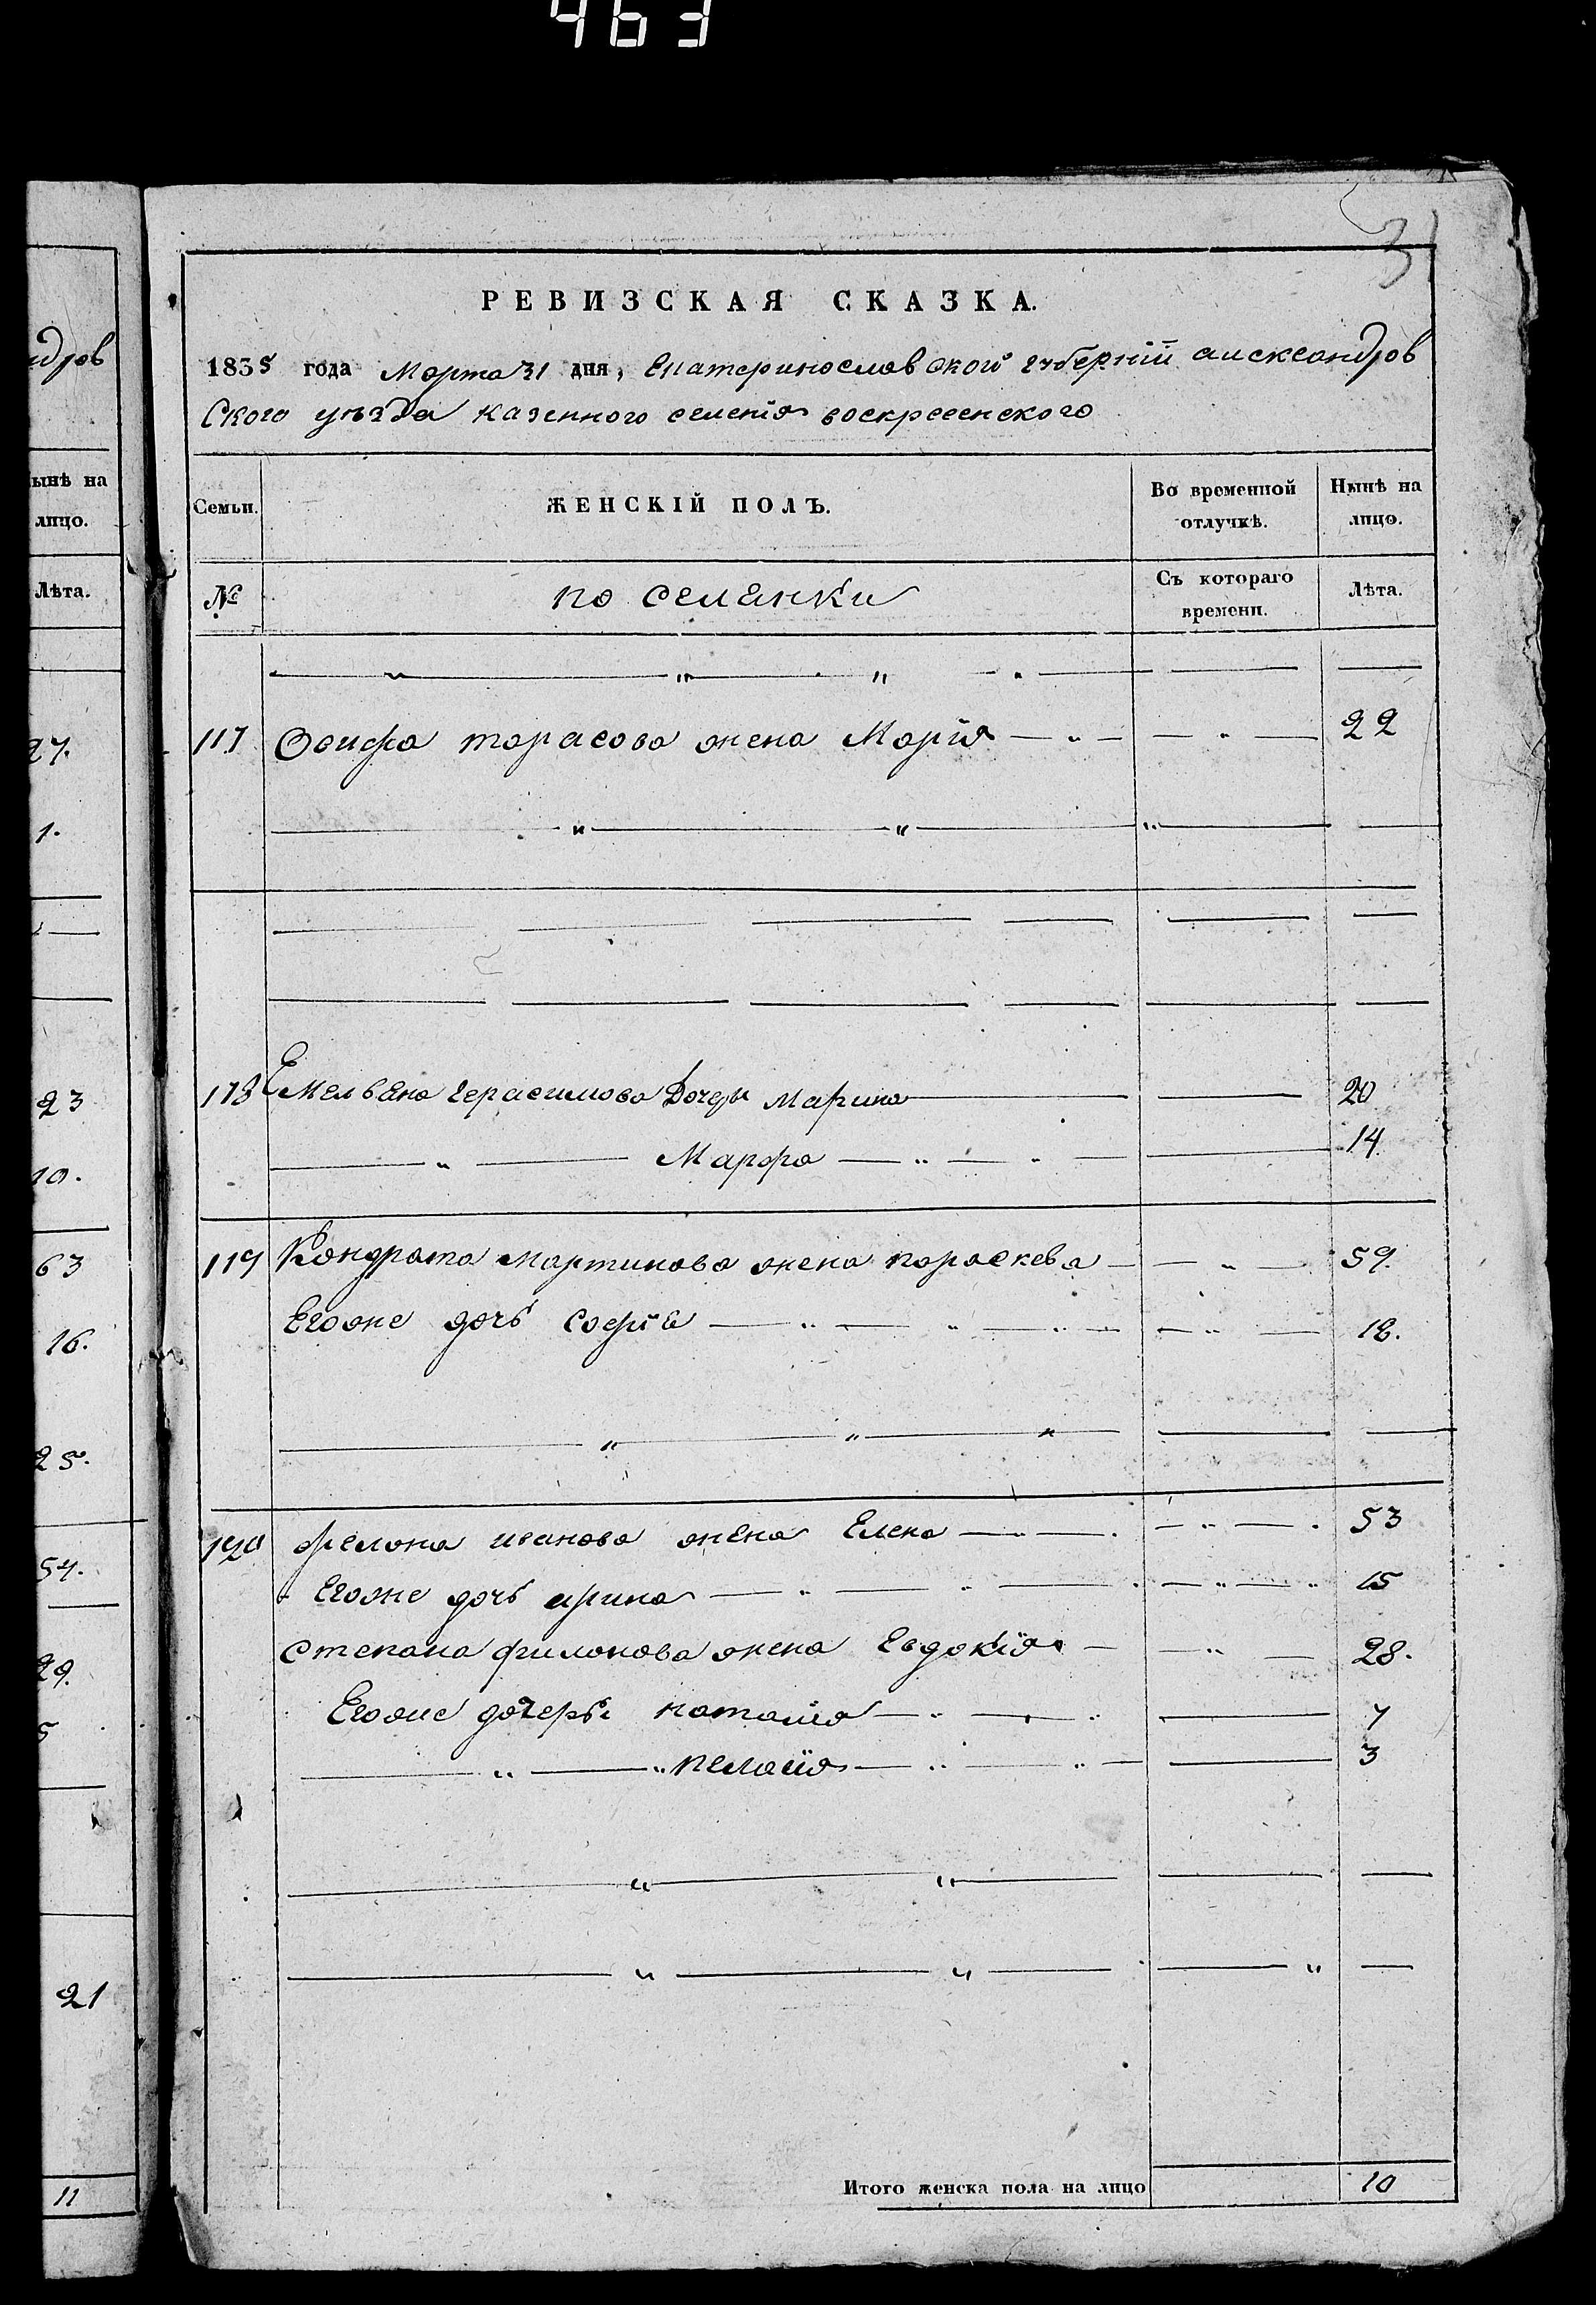 463
31
РЕВИЗСКАЯ СКАЗКА.
1835 года Марта 31 дня, Екатеринославской губернїи александров
ского уѣзда казенного селенїя воскресенского
Семьи. ЖЕНСКІЙ ПОЛЪ. Во временной отлучкѣ. Нынѣ на лицо.
№ поселянки Съ котораго времени. Лѣта.
117 Осифа тарасова жена Марїя 22
118 Емельяна герасимова Дочеры Марина 20
Марфа 14
119 Кондрата мартинова жена параскева 59.
Егоже дочь софїя 18.
120 филона иванова жена Елена 53
Егоже дочь ирина 15
Степана филонова жена Евдокїя 28.
Егоже дочеры наталїя 7
пелагїя 3
Итого женска пола на лицо 10
ндров
ынѣ на
лицо.
Лѣта.
27.
1.
23
10.
63
16.
25.
54.
29.
5
21
11